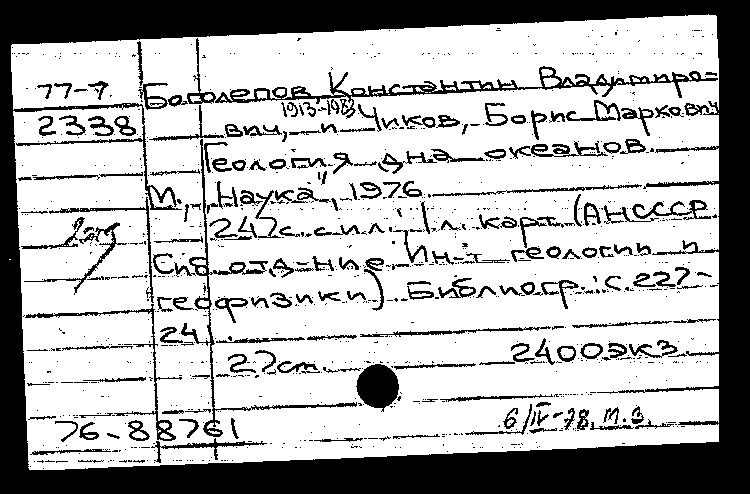 77-7 Боголепов Константин Владимиро=
1913-1983
2338 вич, и Чиков, Борис Маркович
Геология дна океанов.
М., „Наука", 1976.
247с. с ил.; 1 л. карт. (АНСССР.
Сиб. отд-ние. Ин-т геологии и
геофизики). Библиогр.: с. 227-
241.
22см. 2400экз.
76-88761 6/IV-78, М.З.